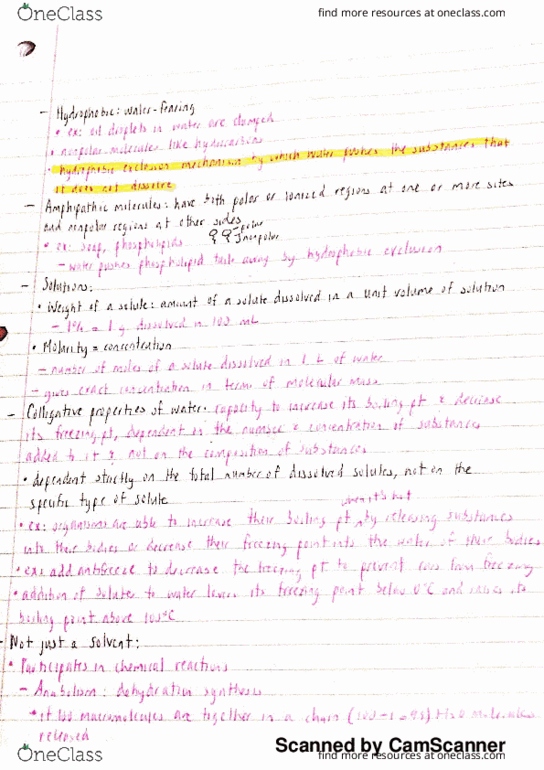 OneClass
find more resources at oneclass.com
- Hydrophobic: water-fearing
• ex: oil droplets in water are clumped
• nonpolar molecules like hydrocarbons
• hydrophobic exclusion mechanism by which water pushes the substances that
it does not dissolve
- Amphipathic molecules: have both polar or ionized regions at one or more sites
and nonpolar regions at other sides
polar
nonpolar
• ex: soap, phospholipids
- water pushes phospholipid tails away by hydrophobic exclusion
- Solutions:
• Weight of a solute: amount of a solute dissolved in a unit volume of solution
- 1% = 1 g dissolved in 100 mL
• Molarity = concentration
- number of moles of a solute dissolved in 1 L of water
- gives exact concentration in term of molecular mass
- Colligative properties of water: capacity to increase its boiling pt & decrease
its freezing pt, dependent on the number & concentration of substances
added to it & not on the composition of substances
• dependent strictly on the total number of dissolved solutes, not on the
specific type of solute
when it's hot
• ex: organisms are able to increase their boiling pt by releasing substances
into their bodies or decrease their freezing point into the water of these bodies
• ex: add antifreeze to decrease the freezing pt to prevent cars from freezing
• addition of solutes to water lowers its freezing point below 0°C and raises its
boiling point above 100°C
- Not just a solvent:
• Participates in chemical reactions
- Anabolism: dehydration synthesis
• if 100 macromolecules are together in a chain (100-1=99) H2O molecules
released
OneClass
Scanned by CamScanner
find more resources at oneclass.com